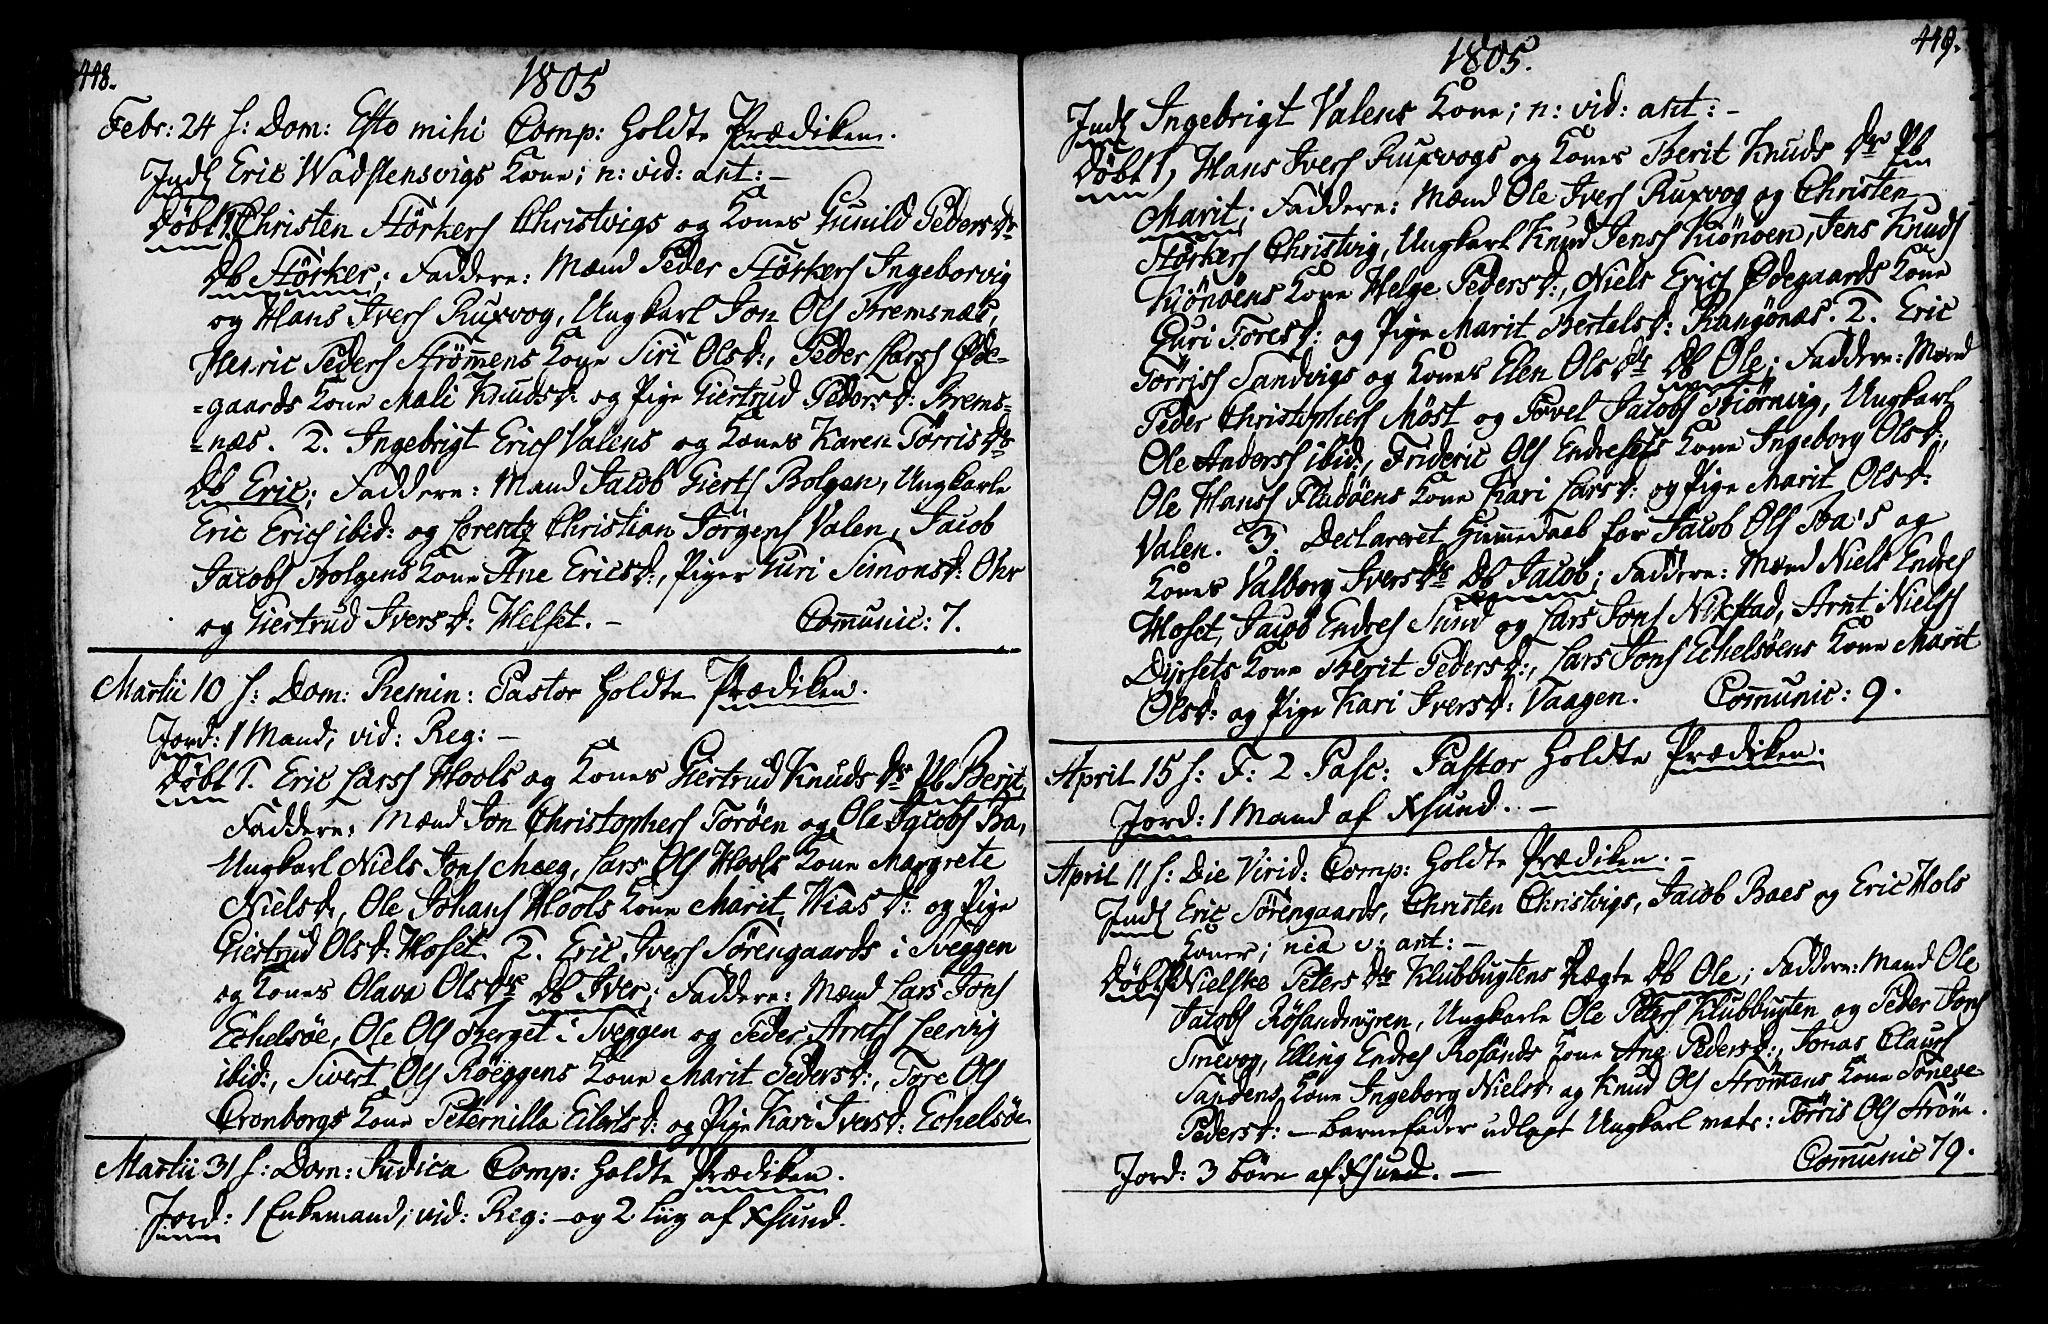 448.
1805
Febr: 24 h: Dom: Esto mihi Comp: holdte Prædiken.
Indl Eric Wadslensvigs Kone; n: vid: ant: -
Døbt 1. Christen Størkers Christvigs og Kones Gunild Peders Dr
Db Størker; Faddere: Mænd Peder Størkers Ingeborvig
og Hans Ivers Ruxvog, Ungkarl Jon Ols Bremsnæs,
Henric Peders Strømens Kone Siri Olsd:, Peder Larss Øde-
=gaards Kone Mali Knudsd: og Pige Giertrud Pedersd: Brems-
=næs. 2. Ingebrigt Erics Valens og Kones Karen Tørris Dr
Db Eric; Faddere: Mænd Jacob Gierts Bolgen, Ungkarle
Eric Erics ibid: og Lorentz Christian Jørgens Valen, Jacob
Jacobs Bolgens Kone Ane Ericsd:, Piger Guri Simonsd: Ohr
og Giertrud Iversd: Helset. - Comunic: 7.
Martii 10 h: Dom: Remin: Pastor holdte Prædiken.
Jord: 1 Mand; vid: Reg: -
Døbt 1. Eric Larss Hools og Kones Giertrud Knuds Dr Pb Berit,
Faddere: Mænd Jon Christophers Torøen og Ole Jacobs Ba,
Ungkarl Niels Jons Moeg, Lars Ols Hools Kone Margrete
Nielsd:, Ole Johans Hools Kone Marit Niasd: og Pige
Giertrud Olsd: Hoset. 2. Eric Ivers Sørengaards i Sveggen
og Kones Olava Ols Dr Db Iver; Faddere: Mænd Lars Jons
Echelsøe, Ole Ols Berget i Sveggen og Peder Arnts Leervig
ibid:, Sivert Ols Røeggens Kone Marit Pedersd:, Tore Ols
Cronborgs Kone Peternilla Eilertsd: og Pige Kari Iversd: Echelsøe
Martii 31 h: Dom: Judica Comp: holdte Prædiken.
Jord: 1 Enkemand; vid: Reg: - og 2 Liig af Xsund.
449.
1805.
Indl Ingebrigt Valens Kone; n: vid: ant: -
Døbt 1, Hans Ivers Ruxvogs og Kones Berit Knuds Dr Pb
Marit; Faddere: Mænd Ole Ivers Ruxvog og Christen
Størkers Christvig, Ungkarl Knud Jens Kiønøen, Jens Knuds
Kiønøens Kone Helge Pedersd:, Niels Erics Ødegaards Kone
Guri Toresd: og Pige Marit Bertelsd: Rangønæs. 2. Eric
Tørriss Sandvigs og Kones Elen Ols Dr Db Ole; Faddere: Mænd
Peder Christophers Möst og Povel Jacobs Biörnvig, Ungkarl
Ole Anderss ibid:, Frideric Ols Endresets Kone Ingeborg Olsd:,
Ole Hanss Fladøens Kone Kari Larsd: og Pige Marit Olsd:
Valen. 3. Declareret Hiemedaab for Jacob Ols Ba's og
Kones Valborg Ivers Dr Db Jacob; Faddere: Mænd Niels Endres
Hoset, Jacob Endres Sund og Lars Jons Nikstad, Arnt Nielss
Dyrsets Kone Berit Pedersd:, Lars Jons Echelsøens Kone Marit
Olsd: og Pige Kari Iversd: Vaagen. Comunic: 9.
April 15 h: F: 2 Pasc: Pastor holdte Prædiken.
Jord: 1 Mand af Xsund. -
April 11 h: Die Virid: Comp: holdte Prædiken. -
Indl Eric Sørengaards, Christen Christvigs, Jacob Baes og Eric Hols
Koner; v: ant: -
Døbt Nielske Peters Dr Klubbugtens Uægte Db Ole; Faddere: Mænd Ole
Jacobs Røsandmyren, Ungkarle Ole Peters Klubbugten og Peder Jons
Smevog, Elling Endres Rosands Kone Ane Pedersd:, Jonas Clauss
Sandens Kone Ingeborg Nielsd: og Knud Ols Strømens Kone
Pedersd: - Barnefader udlagt Ungkarl matr: Tørris Ols Strøm.
Comunic 79.
Jord: 3 börn af Xsund. -